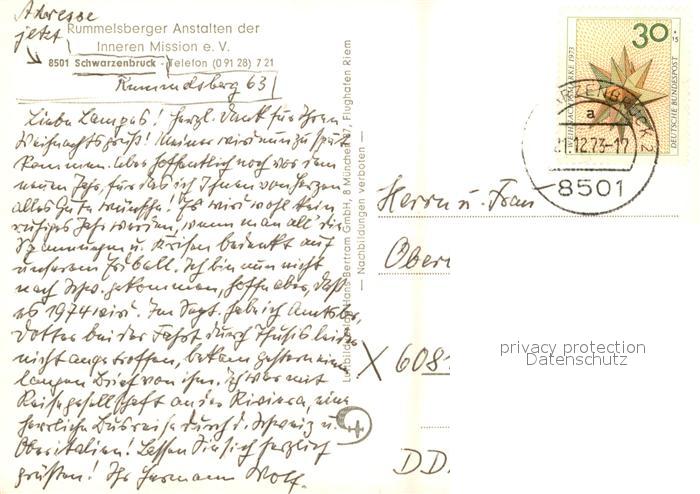 Adresse
jetzt
Rummelsberger Anstalten der
Inneren Mission e. V.
8501 Schwarzenbruck · Telefon (0 91 28) 7 21
Rummelsberg 63
Liebe Lampas! Herzl. Dank für Ihren
Weihnachtsgruß! Meiner wird nun zu spät
kommen. Aber hoffentlich noch vor dem
neuen Jahr, für das ich Ihnen von Herzen
alles Gute wünsche! Es wird wohl kein
ruhiges Jahr werden, wenn man all' die
Spannungen u. Krisen bedenkt auf
unserem Erdball. Ich bin nun nicht
nach Schw. gekommen, hoffe aber, daß
es 1974 wird. Im Sept. hab ich Amtsbr.
Dotter bei der Fahrt durch Thusis leider
nicht angetroffen, bekam gestern einen
langen Brief von ihm. Ich war mit
Reisegesellschaft an der Riviera, eine
herrliche Busreise durch d. Schweiz u.
Oberitalien! Lassen Sie sich herzlich
grüßen! Ihr Hermann Wolf.
Luftbildverlag Hans Bertram GmbH, 8 München 87, Flughafen Riem
— Nachbildungen verboten —
30
+15
WEIHNACHTSMARKE 1973
DEUTSCHE BUNDESPOST
SCHWARZENBRUCK 2
a
21.12.73-17
8501
Herrn u. Frau
Ober
X 608
D.D.
privacy protection
Datenschutz